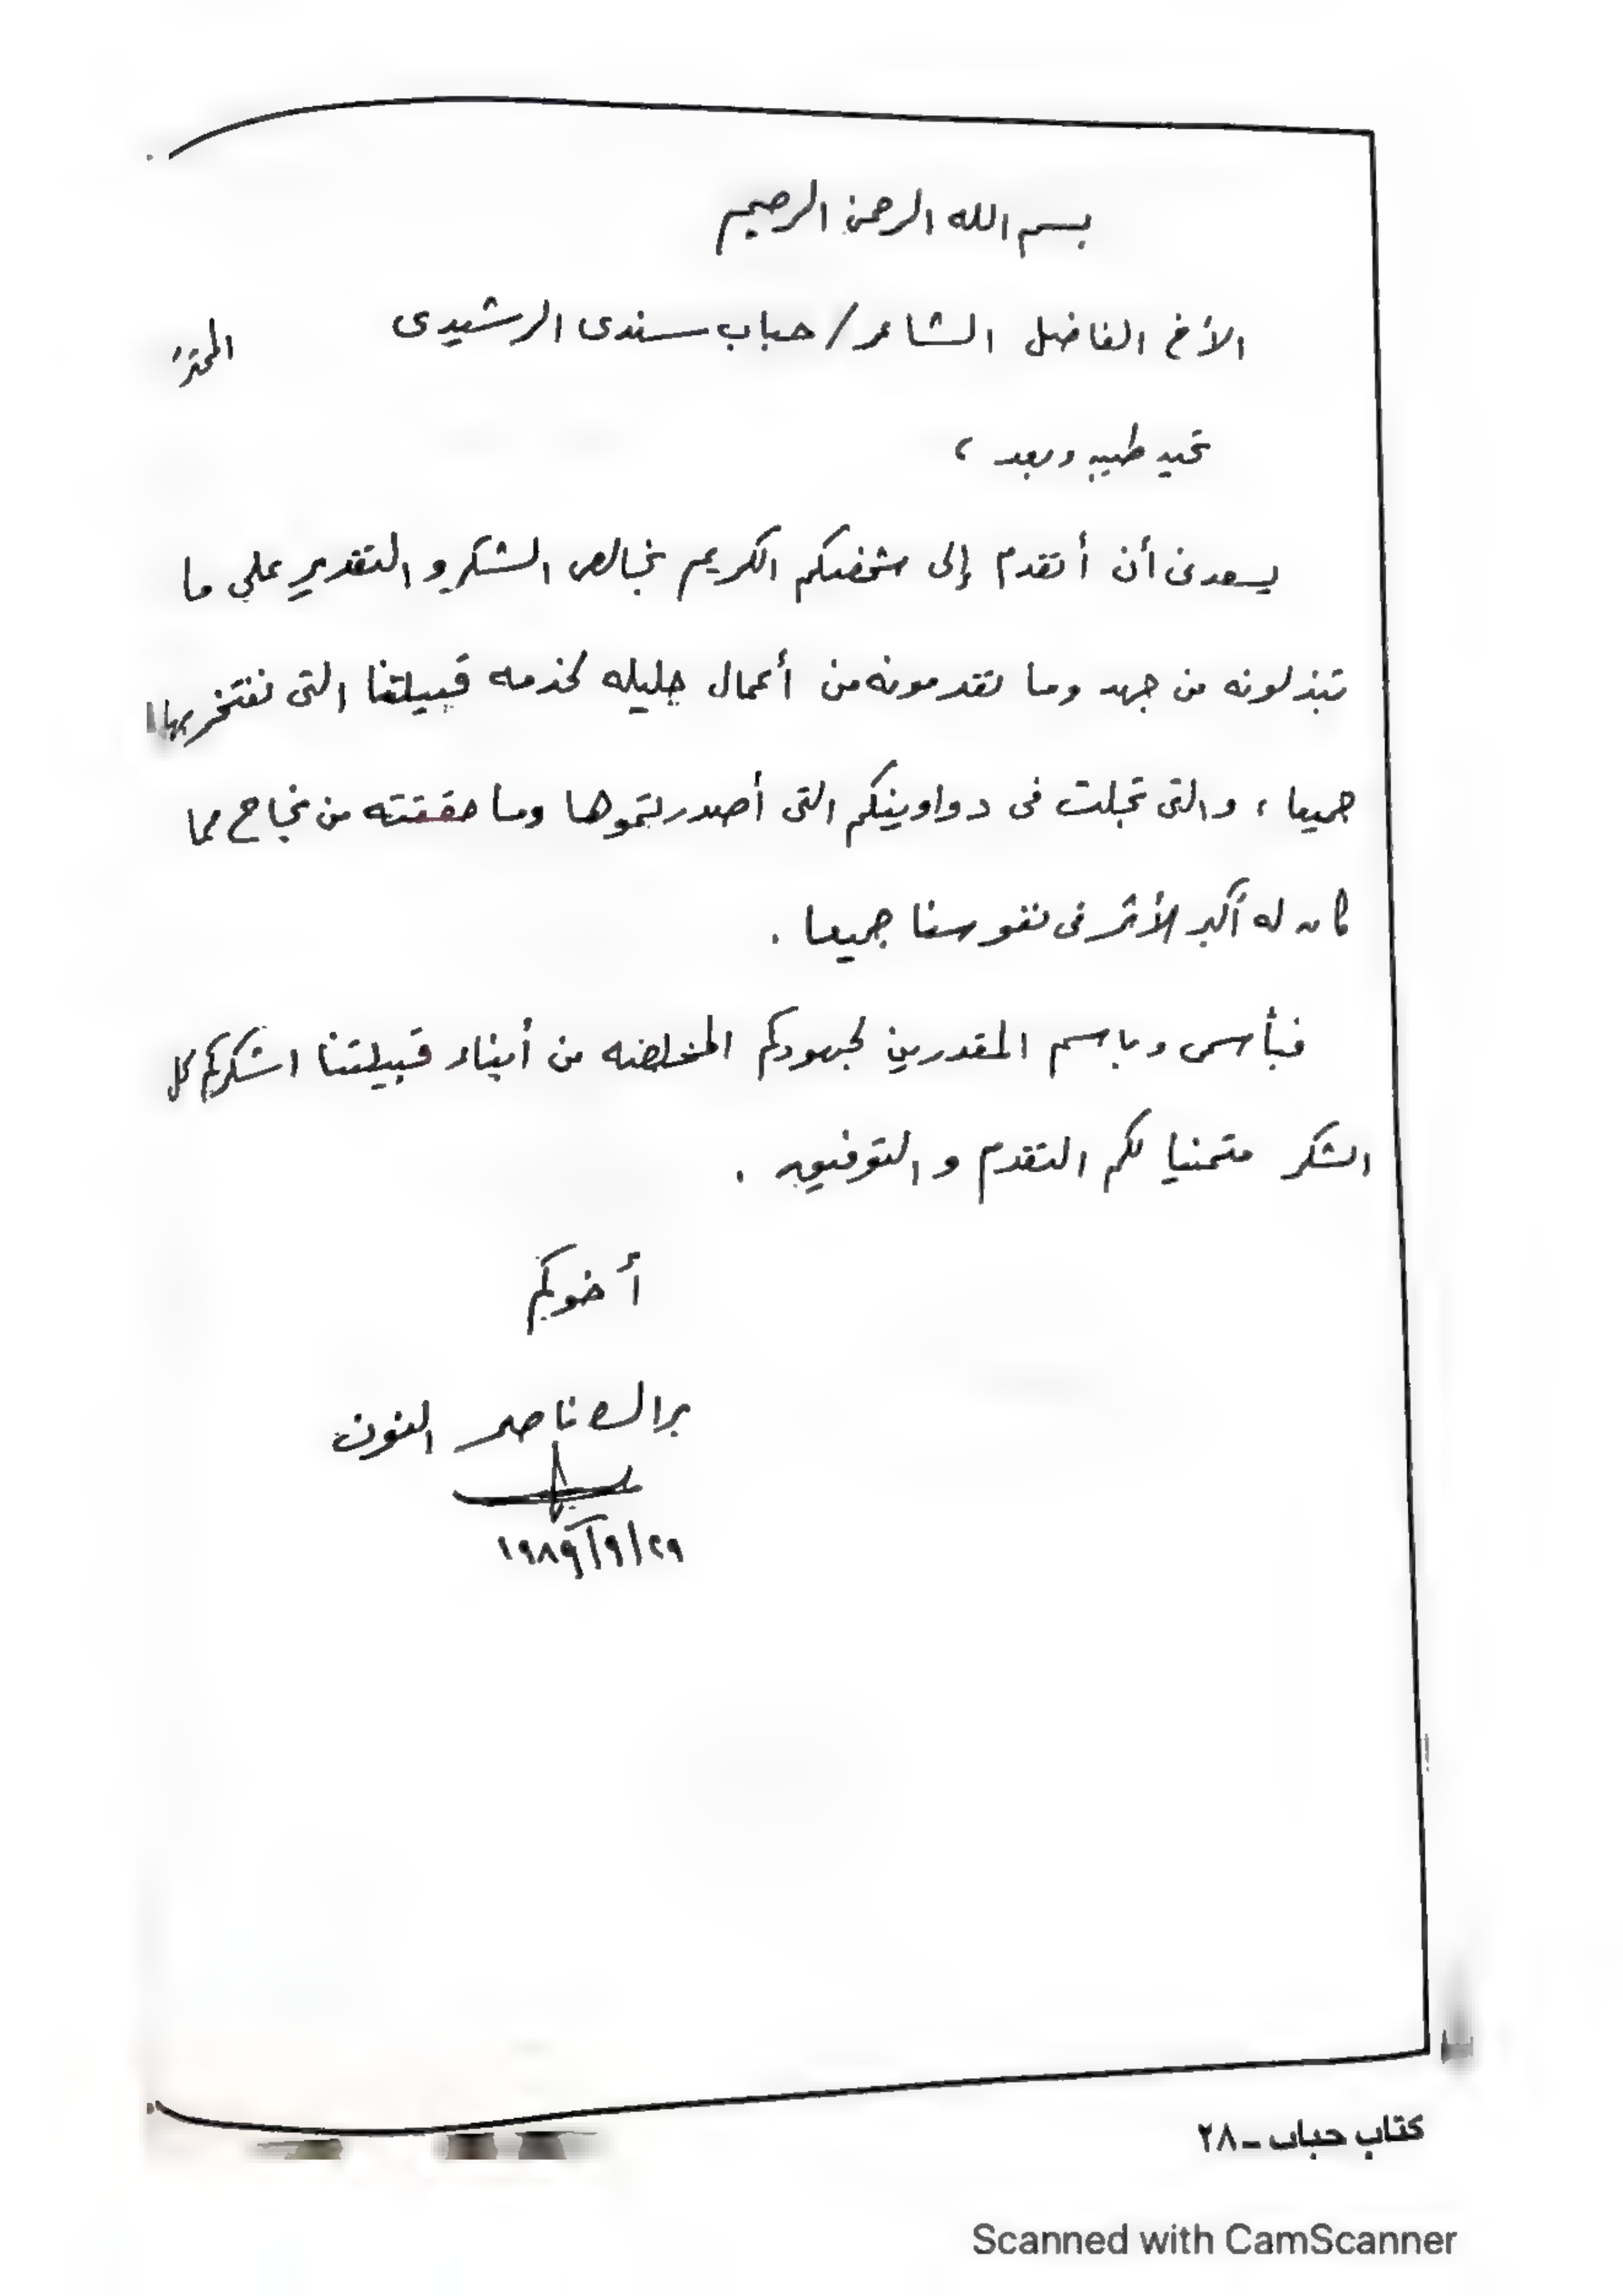 بسم الله الرحمن الرحيم
الأخ الفاضل الشاعر / حباب سندى الرشيدى المحترم
تحيه طيبه وبعد ،
يسعدنى أن أتقدم إلى شخصكم الكريم بخالص الشكر و التقدير على ما
تبذلونه من جهد وما تقدمونه من أعمال جليله لخدمه قبيلتنا التى نفتخر بها
جميعا ، والتى تجلت فى دواوينكم التى أصدرتموها وما حققته من نجاح مما
كان له أكبر الأثر فى نفوسنا جميعا .
فبأسمى وباسم المقدرين لجهودكم المخلصه من أبناء قبيلتنا اشكركم كل
الشكر متمنيا لكم التقدم و التوفيق .
أخوكم
براك ناصر النون
٢٩/٩/١٩٨٩
كتاب حباب - ٢٨
Scanned with CamScanner